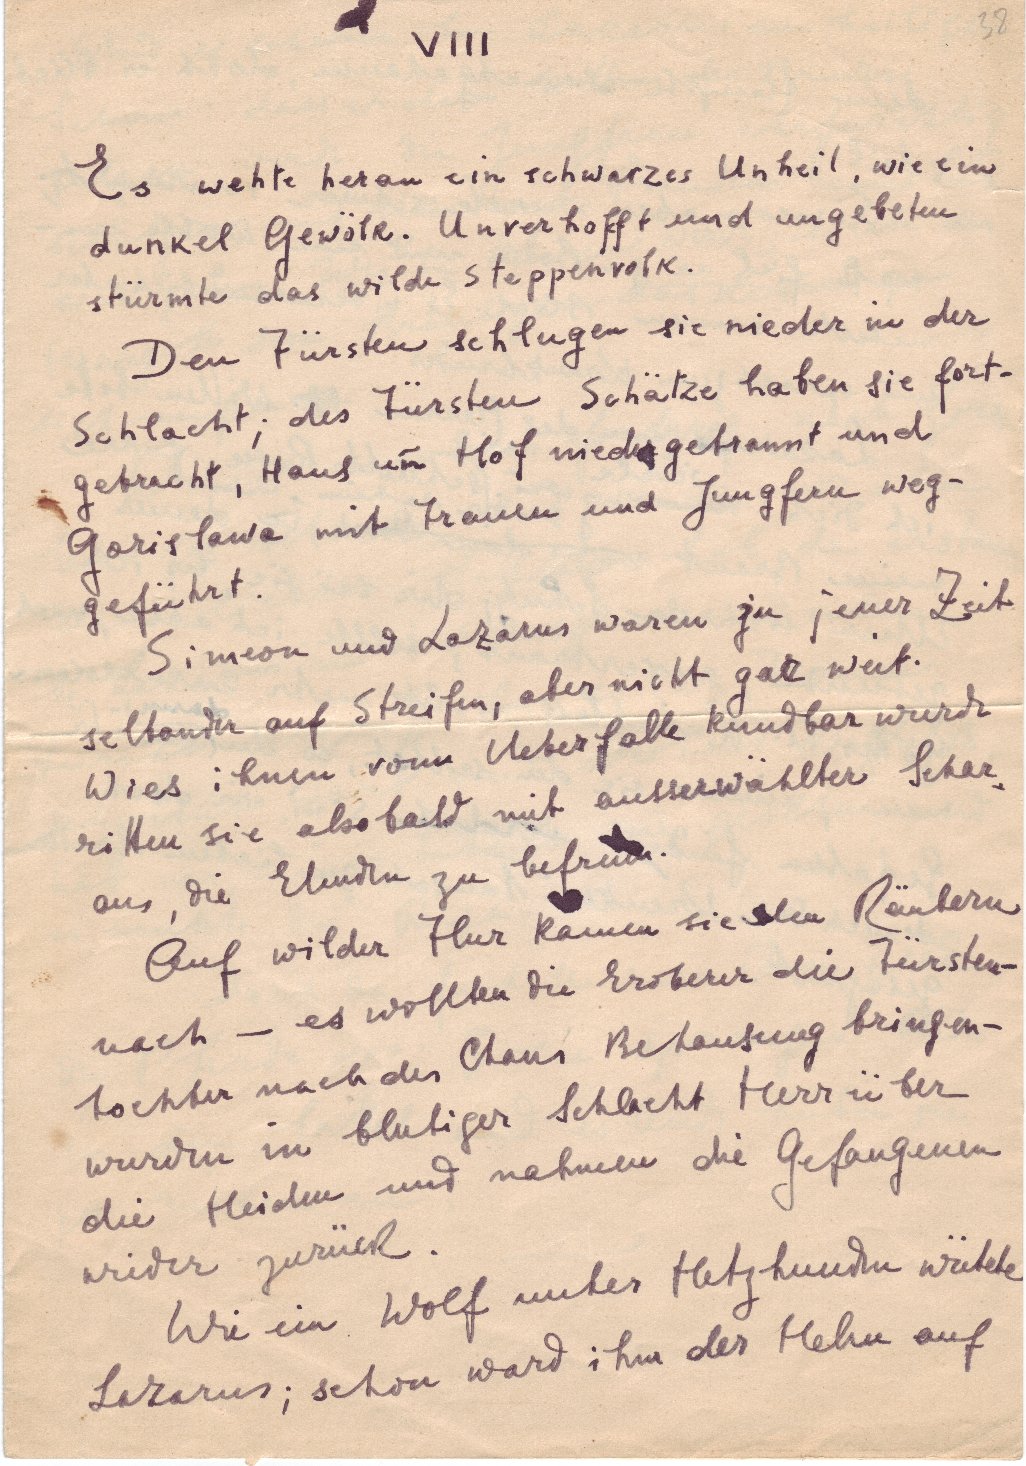 38
VIII
Es wehte heran ein schwarzes Unheil, wie ein
dunkel Gewölk. Unverhofft und ungebeten
stürmte das wilde Steppenvolk.
Den Fürsten schlugen sie nieder in der
Schlacht; des Fürsten Schätze haben sie fort-
gebracht, Haus un̄ Hof niedergebrannt und
Gorislawa mit Frauen und Jungfern weg-
geführt.
Simeon und Lazarus waren in jener Zeit
selbander auf Streifen, aber nicht gar weit.
Wies ihnen vom Ueberfalle kundbar wurde
ritten sie alsobald mit ausserwählter Schar
aus, die Elenden zu befreien.
Auf wilder Flur kamen sie den Räubern
nach — es wollten die Eroberer die Fürsten-
tochter nach des Chans Behausung bringen-
wurden in blutiger Schlacht Herr über
die Heiden und nahmen die Gefangenen
wieder zurück.
Wie ein Wolf unter Hetzhunden wütete
Lazarus; schon ward ihm der Helm auf